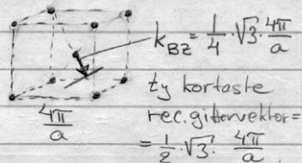 k_BZ = 1/4 · √3 · 4π/a
ty kortaste
rec. gittervektor =
= 1/2 · √3 · 4π/a
4π/a